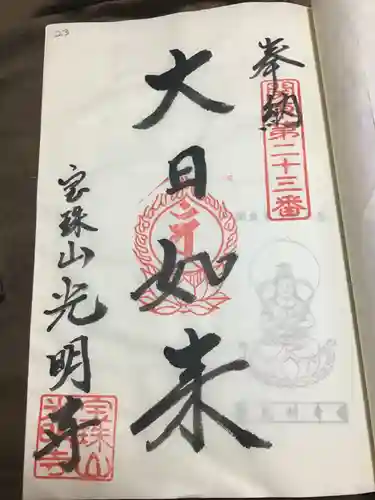 23
奉納
関東第二十三番
大日如来
宝珠山光明寺
宝珠山
光明寺